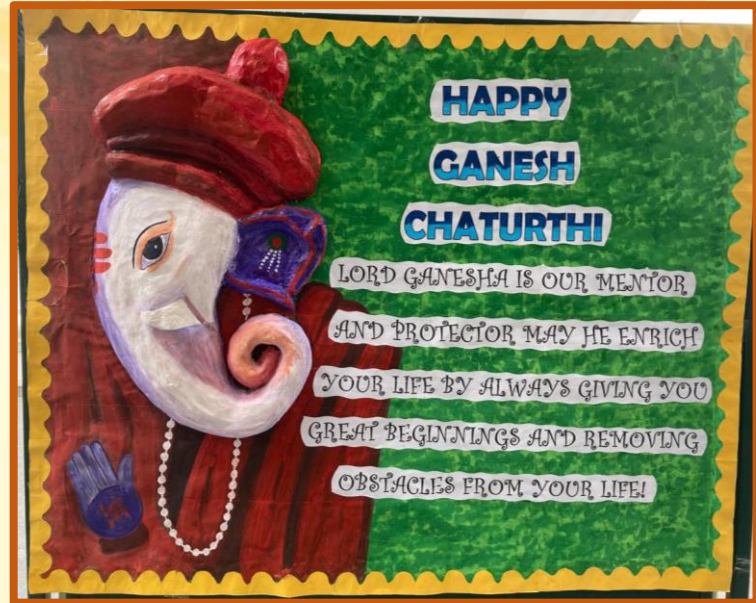 HAPPY
GANESH
CHATURTHI
LORD GANESHA IS OUR MENTOR
AND PROTECTOR MAY HE ENRICH
YOUR LIFE BY ALWAYS GIVING YOU
GREAT BEGINNINGS AND REMOVING
OBSTACLES FROM YOUR LIFE!